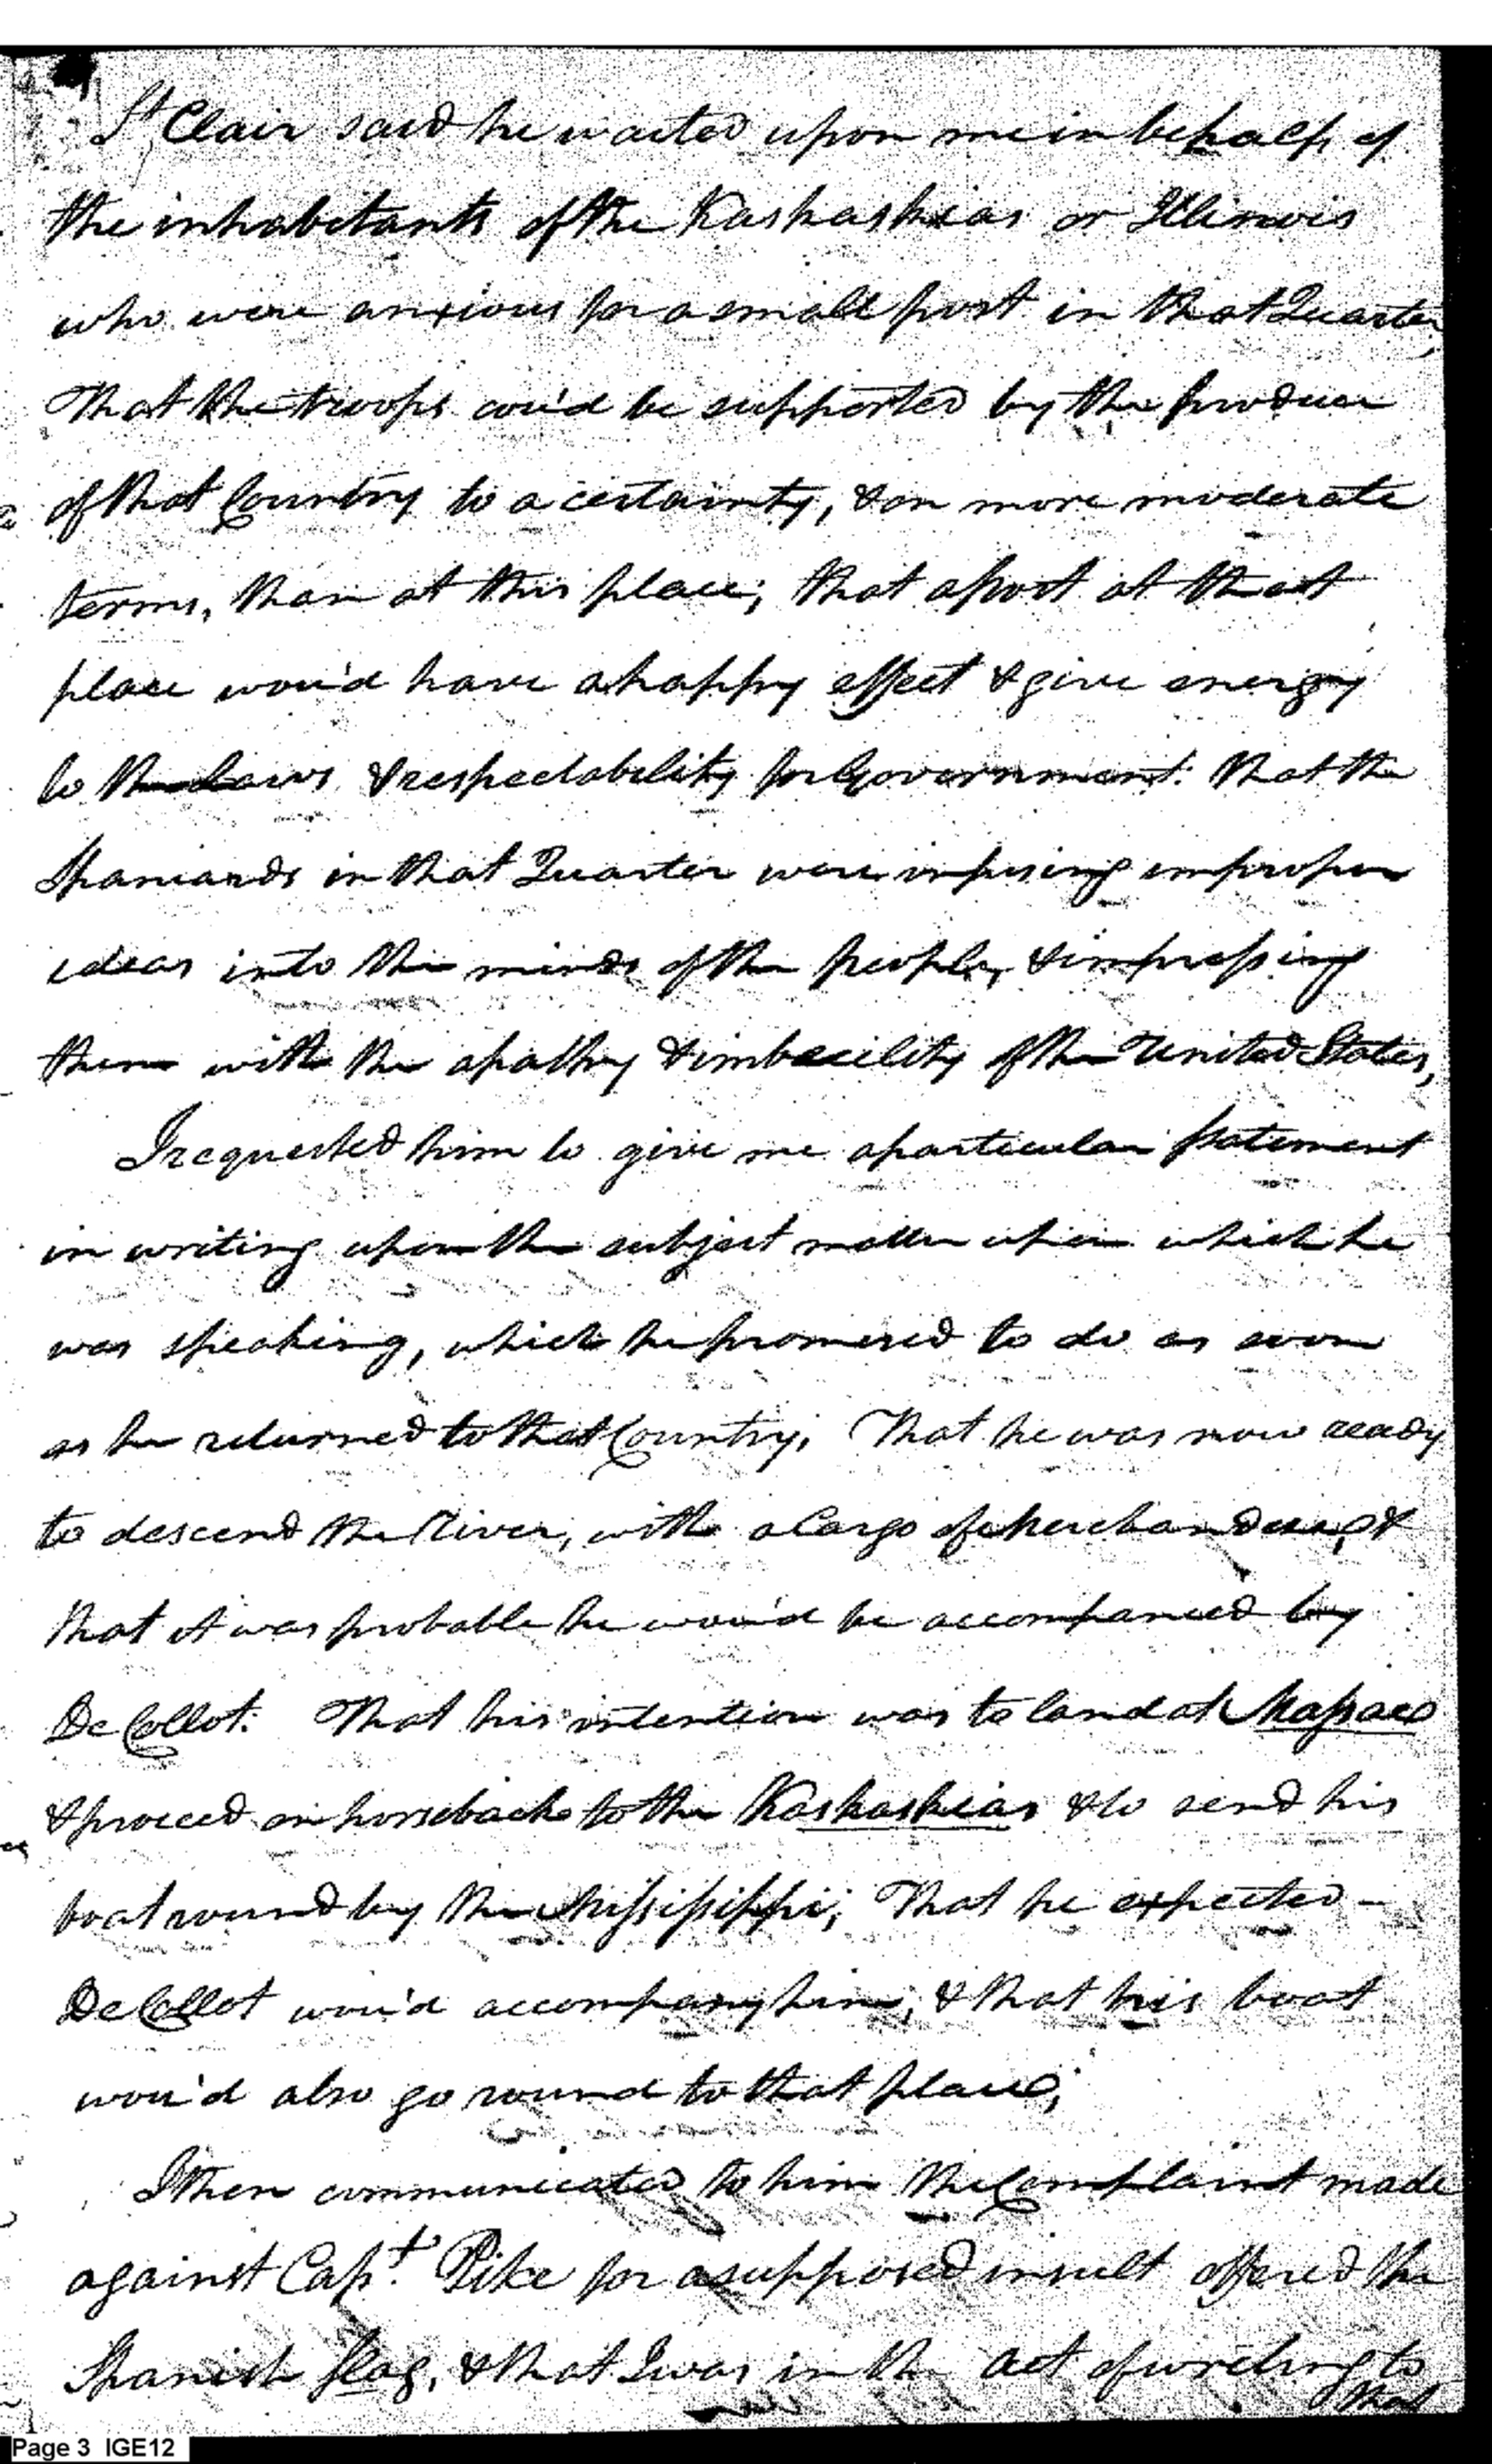 St Clair said he waited upon me in behalf of
the inhabitants of the Kaskaskias or Illinois
who were anxious for a small post in that Quarter,
That the troops cou'd be supported by the produce
of that Country to a certainty, & on more moderate
terms, than at this place; that a post at that
place wou'd have a happy effect & give energy
to the Laws & respectability for Government: that the
Spaniards in that Quarter were infusing improper
ideas into the minds of the people, & impressing
them with the apathy & imbecility of the United States,
I requested him to give me a particular statement
in writing upon the subject matter upon which he
was speaking, which he promised to do as soon
as he returned to that Country, That he was now ready
to descend the River, with a Cargo of Merchandise, &
that it was probable he wou'd be accompanied by
De Collot. That his intention was to land at Massac
& proceed on horseback to the Kaskaskias & to send his
boat round by the Mississippi; That he expected -
De Collot wou'd accompany him, & that his boat
wou'd also go round to that place;
I then communicated to him the Complaint made
against Capt. Pike for a supposed insult offered the
Spanish flag, & that I was in the act of writing to
that
Page 3 IGE12